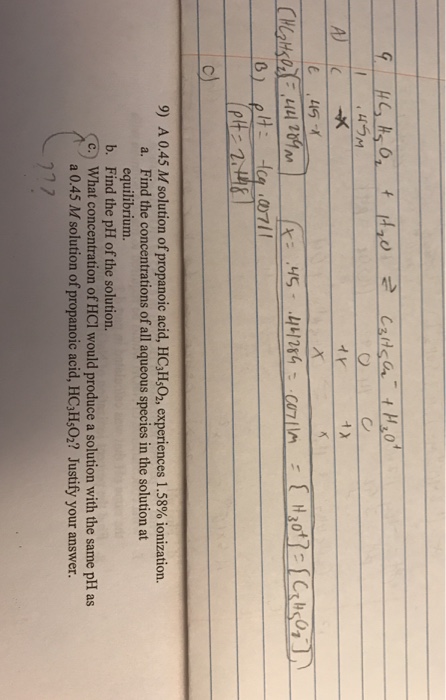 9. HC₃H₅O₂ + H₂O ⇌ C₃H₅O₂⁻ + H₃O⁺
I .45M 0 0
A) C -x +x +x
E .45-x x x
[HC₃H₅O₂] = .44289M x = .45 - .44289 = .00711M = [H₃O⁺] = [C₃H₅O₂⁻]
B) pH = -log .00711
pH = 2.148
C)
9) A 0.45 M solution of propanoic acid, HC₃H₅O₂, experiences 1.58% ionization.
a. Find the concentrations of all aqueous species in the solution at
equilibrium.
b. Find the pH of the solution.
c. What concentration of HCl would produce a solution with the same pH as
a 0.45 M solution of propanoic acid, HC₃H₅O₂? Justify your answer.
???